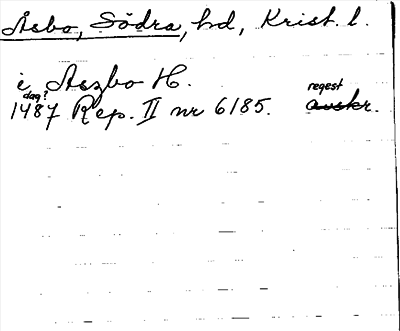 Åsbo, Södra, hd, Krist. l.
i Aszbo H.
dag? regest
1487 Rep. II nr 6185. avskr.